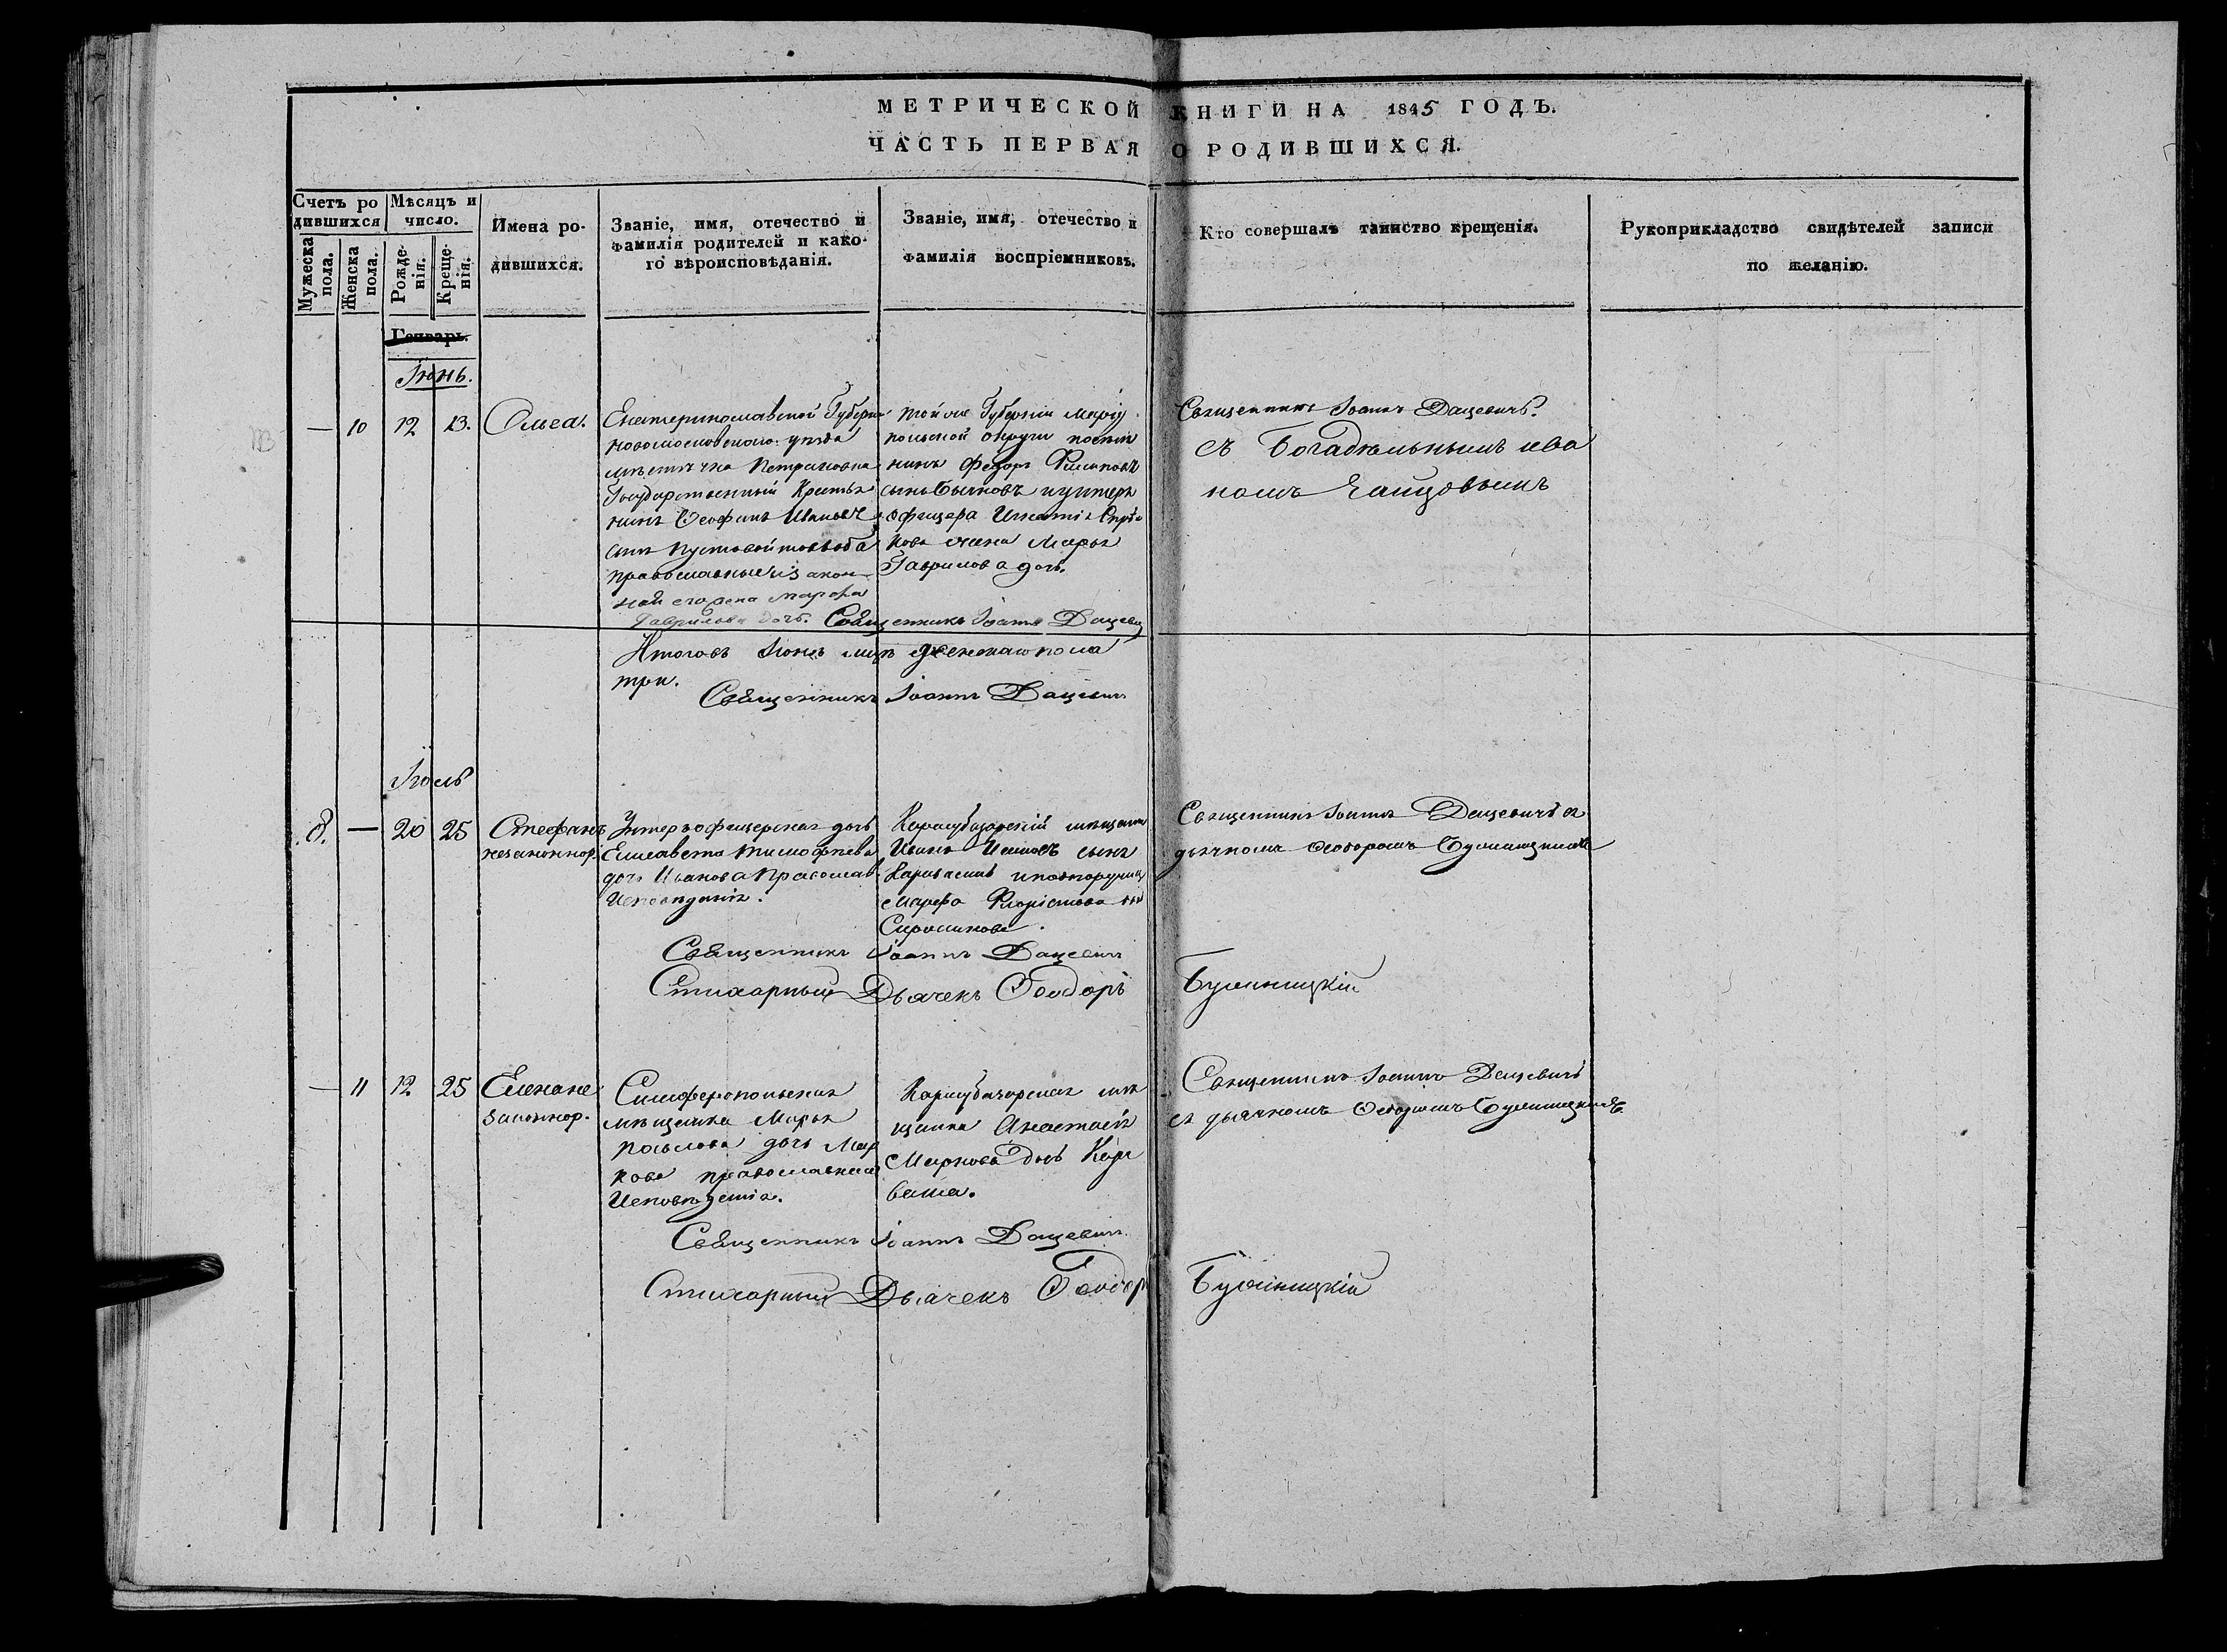 МЕТРИЧЕСКОЙ КНИГИ НА 1845 ГОДЪ.
ЧАСТЬ ПЕРВАЯ О РОДИВШИХСЯ.
Счетъ ро
дившихся
Мужеска
пола.
Женска
пола.
Мѣсяцъ и
число.
Рожде-
нія.
Креще-
нія.
Имена ро-
дившихся.
Званіе, имя, отечество и
фамилія родителей и како-
го вѣроисповѣданія.
Званіе, имя, отечество и
фамилія воспріемниковъ.
Кто совершалъ таинство крещенія.
Рукоприкладство свидѣтелей записи
по желанію.
Генварь.
Іюнь.
— 10 12 13. Ольга.
Екатеринославской Губерн
новомосковского уѣзда
мѣстечка Петриковка
Государственный Крестья
нинъ Ѳеофанъ Ивановъ
сынъ Пустовойтовъ оба
православные изакон-
ная его жена Марфа
Гаврилова дочь.
той же Губерніи Маріу
польской округи поселя
нинъ Федоръ Филиповъ
сынъ Бычковъ иунтеръ
офицера Игнатія
кова жена Марья
Гаврилова дочь.
Священникъ Іоаннъ Дацевичъ
съ Богадѣльнымъ Ива
номъ
Священникъ Іоаннъ Дацевич
Итого въ Іюнѣ мцѣ женскаго пола
три.
Священникъ Іоаннъ Дацевичъ
Іюль
8. — 20 25 Стефанъ
незаконнор.
Унтеръофицерская дочь
Елисавета Тимофѣева
дочь Иванова Православ
Исповѣданія.
Карасубазарскій мѣщани
Иванъ Ивановъ сынъ
Караваевъ иподпоручиц
Марфа
Сиротинова.
Священникъ Іоаннъ Дацевичъ съ
дьячкомъ Ѳеодоромъ Буленицкимъ
Священникъ Іоаннъ Дацевичъ
Стихарный Дьячекъ Ѳеодоръ Буленицкій
— 11 12 25 Елена не
законнор.
Симферопольская
мѣщанка Марья
дочь Мар
кова православнаго
Исповѣданія.
Карасубазарская мѣ
щанка Анастасія
Маркова дочь Кара
ваева.
Священникъ Іоаннъ Дацевичъ
съ дьячкомъ Ѳеодоромъ Буленицкимъ
Священникъ Іоаннъ Дацевичъ.
Стихарный Дьячекъ Ѳеодоръ Буленицкій